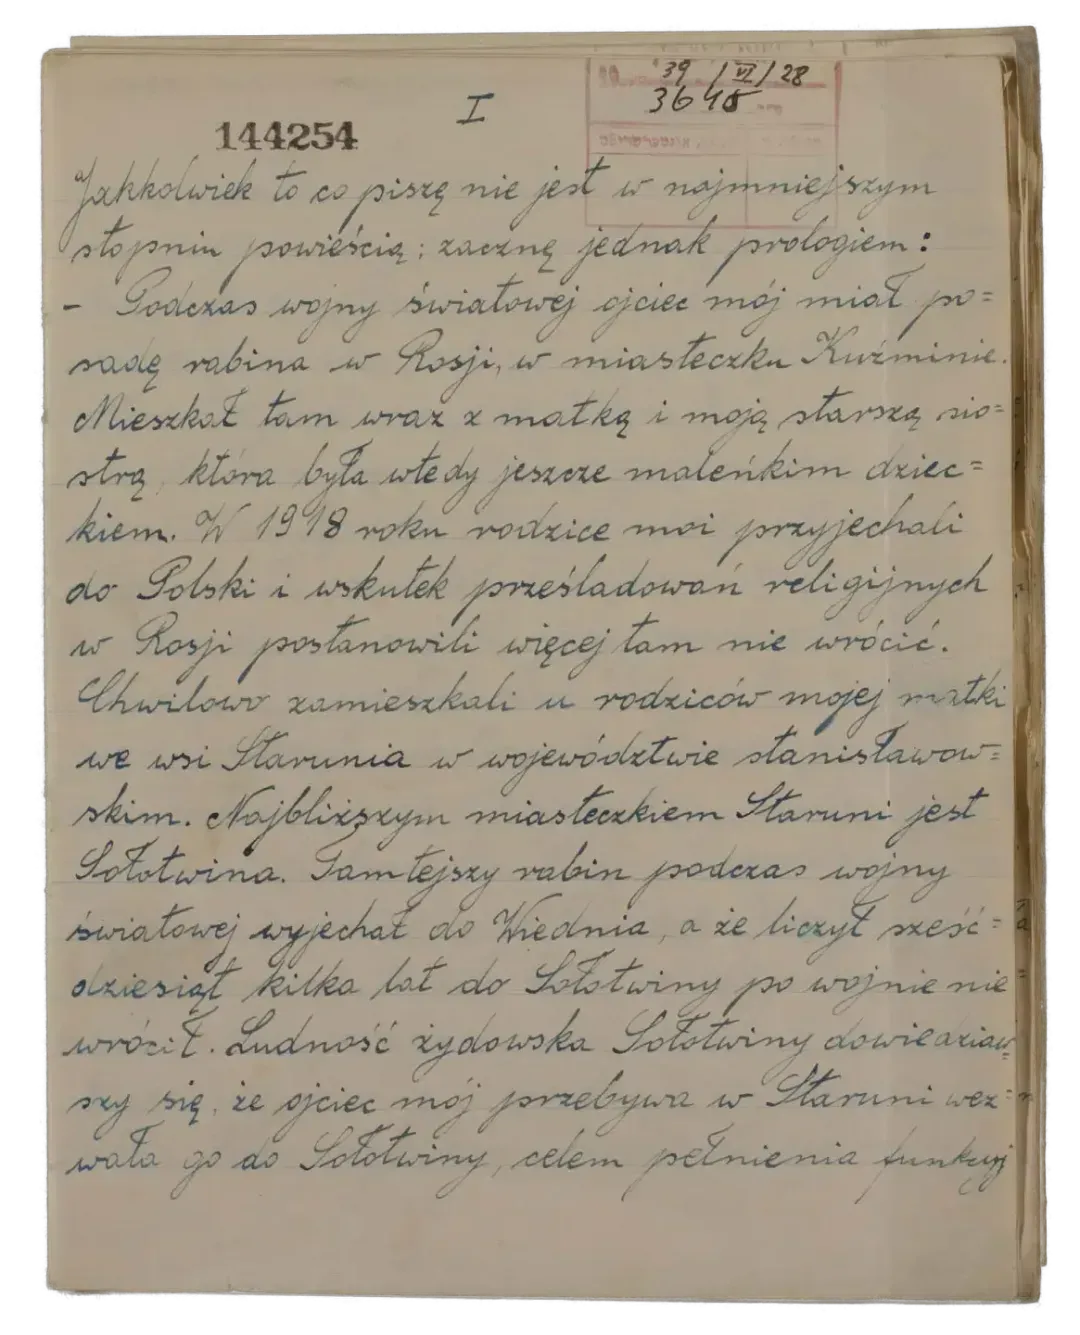 39 / VI / 28
3648
I
144254
Jakkolwiek to co piszę nie jest w najmniejszym
stopniu powieścią; zacznę jednak prologiem:
- Podczas wojny światowej ojciec mój miał po=
sadę rabina w Rosji, w miasteczku Kuźminie.
Mieszkał tam wraz z matką i moją starszą sio=
strą, która była wtedy jeszcze maleńkim dziec=
kiem. W 1918 roku rodzice moi przyjechali
do Polski i wskutek prześladowań religijnych
w Rosji postanowili więcej tam nie wrócić.
Chwilowo zamieszkali u rodziców mojej matki
we wsi Starunia w województwie stanisławow=
skim. Najbliższym miasteczkiem Staruni jest
Sołotwina. Tamtejszy rabin podczas wojny
światowej wyjechał do Wiednia, a że liczył sześć=
dziesiąt kilka lat do Sołotwiny po wojnie nie
wrócił. Ludność żydowska Sołotwiny dowiedziaw=
szy się, że ojciec mój przebywa w Staruni wez=
wała go do Sołotwiny, celem pełnienia funkcyj